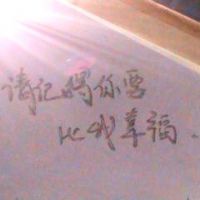 请记得你要
比我幸福.